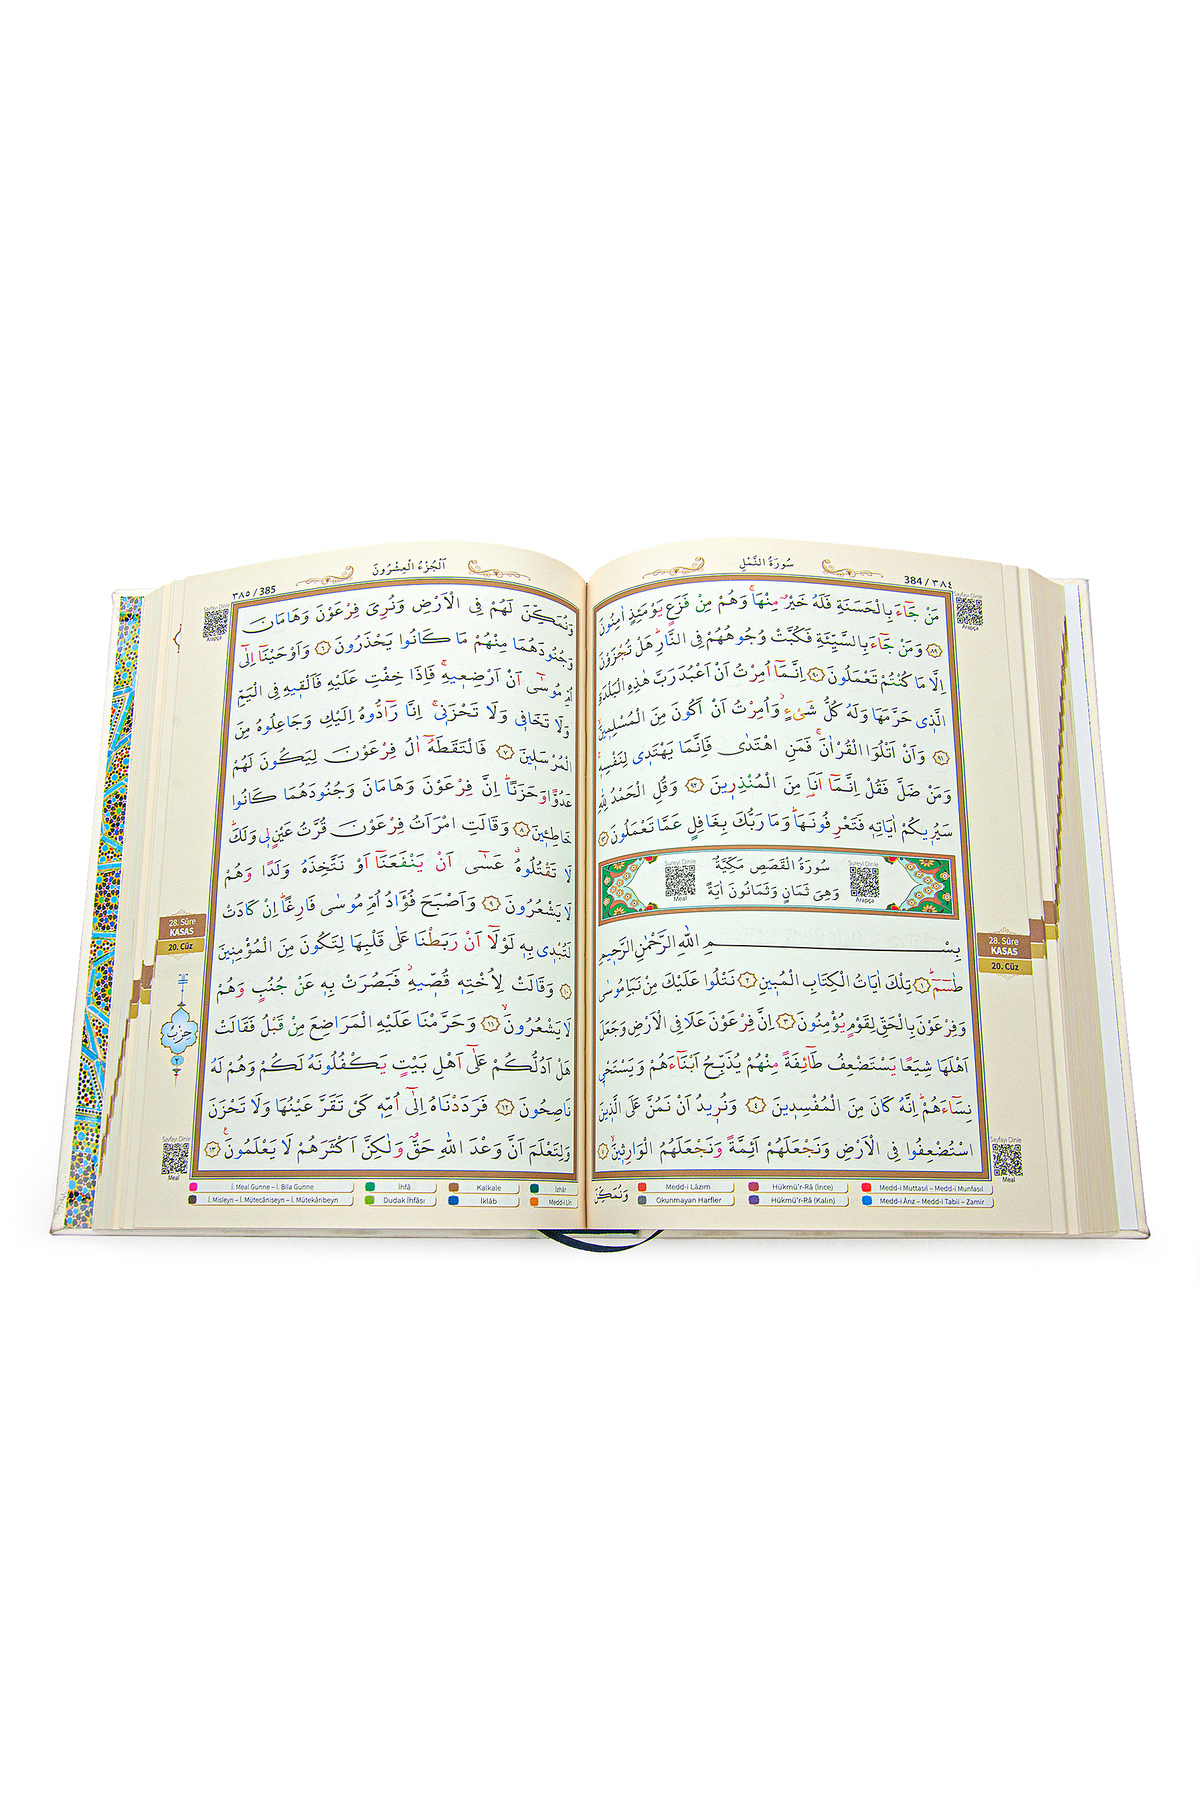 384 / ٣٨٤
سُورَةُ النَّمْلِ
مَنْ جَٓاءَ بِالْحَسَنَةِ فَلَهُ خَيْرٌ مِنْهَاۚ وَهُمْ مِنْ فَزَعٍ يَوْمَئِذٍ اٰمِنُونَ
﴿٨٩﴾ وَمَنْ جَٓاءَ بِالسَّيِّئَةِ فَكُبَّتْ وُجُوهُهُمْ فِي النَّارِۜ هَلْ تُجْزَوْنَ
اِلَّا مَا كُنْتُمْ تَعْمَلُونَ ﴿٩٠﴾ اِنَّمَٓا اُمِرْتُ اَنْ اَعْبُدَ رَبَّ هٰذِهِ الْبَلْدَةِ
الَّذ۪ي حَرَّمَهَا وَلَهُ كُلُّ شَيْءٍۘ وَاُمِرْتُ اَنْ اَكُونَ مِنَ الْمُسْلِم۪ينَۙ
﴿٩١﴾ وَاَنْ اَتْلُوَا الْقُرْاٰنَۚ فَمَنِ اهْتَدٰى فَاِنَّمَا يَهْتَد۪ي لِنَفْسِه۪ۚ
وَمَنْ ضَلَّ فَقُلْ اِنَّمَٓا اَنَا۬ مِنَ الْمُنْذِر۪ينَ ﴿٩٢﴾ وَقُلِ الْحَمْدُ لِلّٰهِ
سَيُر۪يكُمْ اٰيَاتِه۪ فَتَعْرِفُونَهَاۜ وَمَا رَبُّكَ بِغَافِلٍ عَمَّا تَعْمَلُونَ ﴿٩٣﴾
Sureyi Dinle
Meal
سُورَةُ الْقَصَصِ مَكِّيَّةٌ
وَهِيَ ثَمَانٍ وَثَمَانُونَ اٰيَةً
Sureyi Dinle
Arapça
بِسْمِ اللّٰهِ الرَّحْمٰنِ الرَّح۪يمِ
طٰسٓمٓۜ ﴿١﴾ تِلْكَ اٰيَاتُ الْكِتَابِ الْمُب۪ينِ ﴿٢﴾ نَتْلُوا عَلَيْكَ مِنْ نَبَأِ مُوسٰى
وَفِرْعَوْنَ بِالْحَقِّ لِقَوْمٍ يُؤْمِنُونَ ﴿٣﴾ اِنَّ فِرْعَوْنَ عَلَا فِي الْاَرْضِ وَجَعَلَ
اَهْلَهَا شِيَعًا يَسْتَضْعِفُ طَٓائِفَةً مِنْهُمْ يُذَبِّحُ اَبْنَٓاءَهُمْ وَيَسْتَحْي۪
نِسَٓاءَهُمْۜ اِنَّهُ كَانَ مِنَ الْمُفْسِد۪ينَ ﴿٤﴾ وَنُر۪يدُ اَنْ نَمُنَّ عَلَى الَّذ۪ينَ
اسْتُضْعِفُوا فِي الْاَرْضِ وَنَجْعَلَهُمْ اَئِمَّةً وَنَجْعَلَهُمُ الْوَارِث۪ينَۙ ﴿٥﴾
وَنُمَكِّنَ
Sayfayı Dinle
Arapça
28. Sûre
KASAS
20. Cüz
Sayfayı Dinle
Meal
Medd-i Lâzım
Hükmü'r-Râ (İnce)
Medd-i Muttasıl – Medd-i Munfasıl
Okunmayan Harfler
Hükmü'r-Râ (Kalın)
Medd-i Ârız – Medd-i Tabii – Zamir
٣٨٥ / 385
اَلْجُزْءُ الْعِشْرُونَ
وَنُمَكِّنَ لَهُمْ فِي الْاَرْضِ وَنُرِيَ فِرْعَوْنَ وَهَامَانَ
وَجُنُودَهُمَا مِنْهُمْ مَا كَانُوا يَحْذَرُونَ ﴿٦﴾ وَاَوْحَيْنَٓا اِلٰٓى
اُمِّ مُوسٰٓى اَنْ اَرْضِع۪يهِۚ فَاِذَا خِفْتِ عَلَيْهِ فَاَلْق۪يهِ فِي الْيَمِّ
وَلَا تَخَاف۪ي وَلَا تَحْزَن۪يۚ اِنَّا رَٓادُّوهُ اِلَيْكِ وَجَاعِلُوهُ مِنَ
الْمُرْسَل۪ينَ ﴿٧﴾ فَالْتَقَطَهُٓ اٰلُ فِرْعَوْنَ لِيَكُونَ لَهُمْ
عَدُوًّا وَحَزَنًاۜ اِنَّ فِرْعَوْنَ وَهَامَانَ وَجُنُودَهُمَا كَانُوا
خَاطِـ۪ٔينَ ﴿٨﴾ وَقَالَتِ امْرَاَتُ فِرْعَوْنَ قُرَّتُ عَيْنٍ ل۪ي وَلَكَۜ
لَا تَقْتُلُوهُۗ عَسٰٓى اَنْ يَنْفَعَنَٓا اَوْ نَتَّخِذَهُ وَلَدًا وَهُمْ
لَا يَشْعُرُونَ ﴿٩﴾ وَاَصْبَحَ فُؤَادُ اُمِّ مُوسٰى فَارِغًاۜ اِنْ كَادَتْ
لَتُبْد۪ي بِه۪ لَوْلَٓا اَنْ رَبَطْنَا عَلٰى قَلْبِهَا لِتَكُونَ مِنَ الْمُؤْمِن۪ينَ
﴿١٠﴾ وَقَالَتْ لِاُخْتِه۪ قُصّ۪يهِۘ فَبَصُرَتْ بِه۪ عَنْ جُنُبٍ وَهُمْ
لَا يَشْعُرُونَۙ ﴿١١﴾ وَحَرَّمْنَا عَلَيْهِ الْمَرَاضِعَ مِنْ قَبْلُ فَقَالَتْ
هَلْ اَدُلُّكُمْ عَلٰٓى اَهْلِ بَيْتٍ يَكْفُلُونَهُ لَكُمْ وَهُمْ لَهُ
نَاصِحُونَ ﴿١٢﴾ فَرَدَدْنَاهُ اِلٰٓى اُمِّه۪ كَيْ تَقَرَّ عَيْنُهَا وَلَا تَحْزَنَ
وَلِتَعْلَمَ اَنَّ وَعْدَ اللّٰهِ حَقٌّ وَلٰكِنَّ اَكْثَرَهُمْ لَا يَعْلَمُونَ۟ ﴿١٣﴾
Sayfayı Dinle
Arapça
28. Sûre
KASAS
20. Cüz
حزب
٢
Sayfayı Dinle
Meal
İ. Meal Gunne – İ. Bila Gunne
İhfâ
Kalkale
İzhâr
İ. Misleyn – İ. Mütecâniseyn – İ. Mütekâribeyn
Dudak İhfâsı
İklâb
Medd-i Lîn